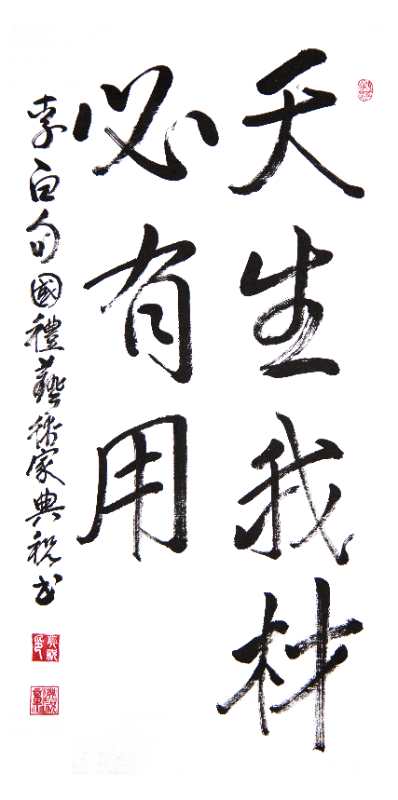 天生我材
必有用
李白句國禮藝術家典稅書